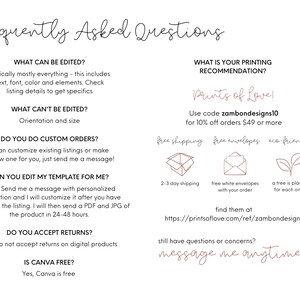 quently Asked Questions
WHAT CAN BE EDITED?
ically mostly everything - this includes
ext, font, color and elements. Check
listing details to get specifics
WHAT CAN'T BE EDITED?
Orientation and size
DO YOU DO CUSTOM ORDERS?
an customize existing listings or make
new one for you, just send me a message!
N YOU EDIT MY TEMPLATE FOR ME?
Send me a message with personalized
tion and I will customize it after you have
the listing. I will then send a PDF and JPG of
the product in 24-48 hours.
DO YOU ACCEPT RETURNS?
o not accept returns on digital products
IS CANVA FREE?
Yes, Canva is free
WHAT IS YOUR PRINTING
RECOMMENDATION?
Prints of Love!
Use code zambondesigns10
for 10% off orders $49 or more
free shipping free envelopes eco-frien
2-3 day shipping
free white envelopes
with your order
a tree is plan
for each or
find them at
https://printsoflove.com/ref/zambondesign
still have questions or concerns?
message me anytime